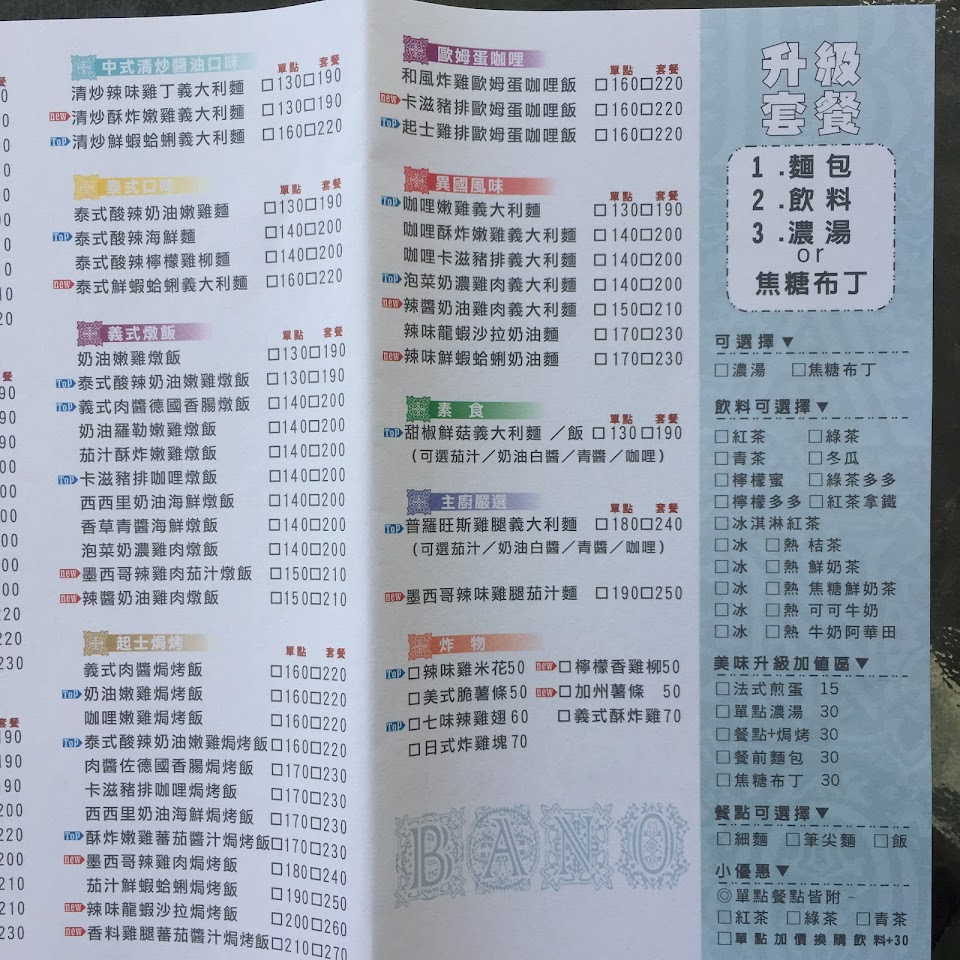 中式清炒醬油口味 單點 套餐
清炒辣味雞丁義大利麵 □130□190
new 清炒酥炸嫩雞義大利麵 □130□190
Top 清炒鮮蝦蛤蜊義大利麵 □160□220
泰式口味 單點 套餐
泰式酸辣奶油嫩雞麵 □130□190
Top 泰式酸辣海鮮麵 □140□200
泰式酸辣檸檬雞柳麵 □140□200
new 泰式鮮蝦蛤蜊義大利麵 □160□220
義式燉飯 單點 套餐
奶油嫩雞燉飯 □130□190
Top 泰式酸辣奶油嫩雞燉飯 □130□190
Top 義式肉醬德國香腸燉飯 □140□200
奶油羅勒嫩雞燉飯 □140□200
茄汁酥炸嫩雞燉飯 □140□200
Top 卡滋豬排咖哩燉飯 □140□200
西西里奶油海鮮燉飯 □140□200
香草青醬海鮮燉飯 □140□200
泡菜奶濃雞肉燉飯 □140□200
new 墨西哥辣雞肉茄汁燉飯 □150□210
new 辣醬奶油雞肉燉飯 □150□210
起士焗烤 單點 套餐
義式肉醬焗烤飯 □160□220
Top 奶油嫩雞焗烤飯 □160□220
咖哩嫩雞焗烤飯 □160□220
Top 泰式酸辣奶油嫩雞焗烤飯 □160□220
肉醬佐德國香腸焗烤飯 □170□230
卡滋豬排咖哩焗烤飯 □170□230
西西里奶油海鮮焗烤飯 □170□230
Top 酥炸嫩雞蕃茄醬汁焗烤飯 □170□230
new 墨西哥辣雞肉焗烤飯 □180□240
茄汁鮮蝦蛤蜊焗烤飯 □190□250
new 辣味龍蝦沙拉焗烤飯 □200□260
new 香料雞腿蕃茄醬汁焗烤飯 □210□270
歐姆蛋咖哩 單點 套餐
和風炸雞歐姆蛋咖哩飯 □160□220
new 卡滋豬排歐姆蛋咖哩飯 □160□220
Top 起士雞排歐姆蛋咖哩飯 □160□220
異國風味 單點 套餐
Top 咖哩嫩雞義大利麵 □130□190
咖哩酥炸嫩雞義大利麵 □140□200
咖哩卡滋豬排義大利麵 □140□200
Top 泡菜奶濃雞肉義大利麵 □140□200
new 辣醬奶油雞肉義大利麵 □150□210
辣味龍蝦沙拉奶油麵 □170□230
new 辣味鮮蝦蛤蜊奶油麵 □170□230
素 食 單點 套餐
Top 甜椒鮮菇義大利麵 ／飯 □130□190
(可選茄汁／奶油白醬／青醬／咖哩)
主廚嚴選 單點 套餐
Top 普羅旺斯雞腿義大利麵 □180□240
(可選茄汁／奶油白醬／青醬／咖哩)
new 墨西哥辣味雞腿茄汁麵 □190□250
炸 物
Top □辣味雞米花50 new □檸檬香雞柳50
□美式脆薯條50 new □加州薯條 50
Top □七味辣雞翅60 □義式酥炸雞70
□日式炸雞塊70
BANO
升級
套餐
1.麵包
2.飲料
3.濃湯
or
焦糖布丁
可選擇▼
□濃湯 □焦糖布丁
飲料可選擇▼
□紅茶 □綠茶
□青茶 □冬瓜
□檸檬蜜 □綠茶多多
□檸檬多多 □紅茶拿鐵
□冰淇淋紅茶
□冰 □熱 桔茶
□冰 □熱 鮮奶茶
□冰 □熱 焦糖鮮奶茶
□冰 □熱 可可牛奶
□冰 □熱 牛奶阿華田
美味升級加值區▼
□法式煎蛋 15
□單點濃湯 30
□餐點+焗烤 30
□餐前麵包 30
□焦糖布丁 30
餐點可選擇▼
□細麵 □筆尖麵 □飯
小優惠▼
◎單點餐點皆附-
□紅茶 □綠茶 □青茶
□單點加價換購飲料+30